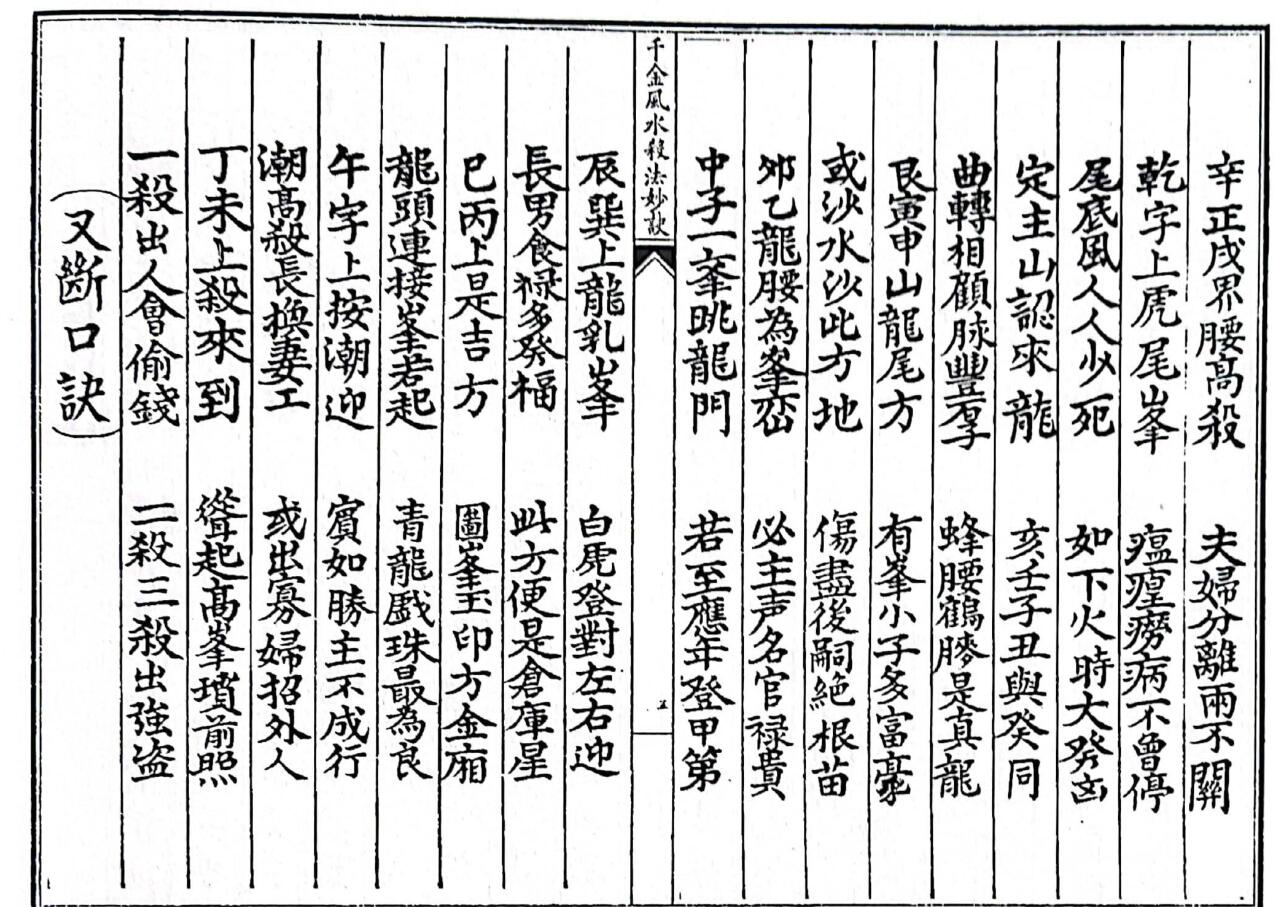 辛正戌界腰高殺　夫婦分離兩不關
乾字上虎尾峯　瘟瘟癆病不曾停
尾底風人人少死　如下火時大發凶
定主山認來龍　亥壬子丑與癸同
曲轉相顧脉豐厚　蜂腰鶴膝是真龍
艮寅甲山龍尾方　有峯小子多富豪
或沙水沙此方地　傷盡後嗣絶根苗
夘乙龍腰為峯巒　必主声名官禄貴
中子一峯跳龍門　若至應年登甲第
千金風水殺法妙訣
五
辰巽上龍乳峯　白虎登對左右迎
長男食禄多發福　此方便是倉庫星
巳丙上是吉方　圓峯玉印方金廂
龍頭連接峯若起　青龍戲珠最為良
午字上按潮迎　賓如勝主不成行
潮高殺長換妻工　或出寡婦招外人
丁未上殺來到　聳起高峯墳前照
一殺出人會偷錢　二殺三殺出強盗
（又斷口訣）